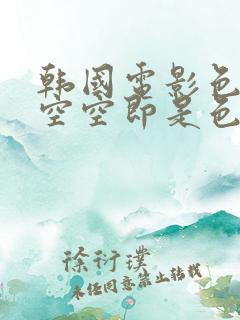 韩国电影色
空空即是色
徐衍璞
未经同意禁止转载